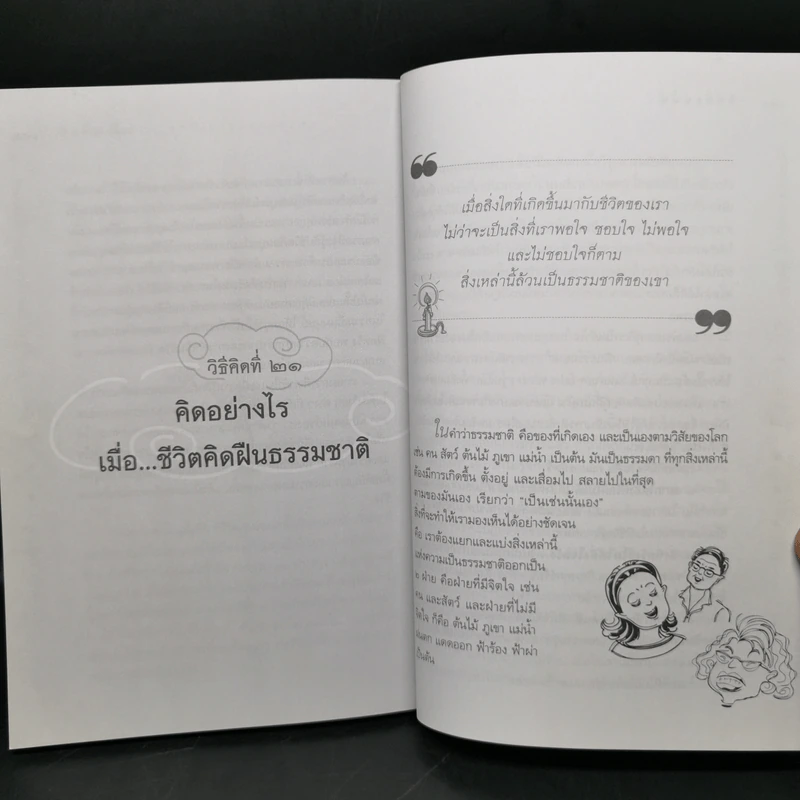 วิธีคิดที่ ๒๑
คิดอย่างไร
เมื่อ...ชีวิตคิดฝืนธรรมชาติ
“
เมื่อสิ่งใดที่เกิดขึ้นมากับชีวิตของเรา
ไม่ว่าจะเป็นสิ่งที่เราพอใจ ชอบใจ ไม่พอใจ
และไม่ชอบใจก็ตาม
สิ่งเหล่านี้ล้วนเป็นธรรมชาติของเขา
”
ในคำว่าธรรมชาติ คือของที่เกิดเอง และเป็นเองตามวิสัยของโลก
เช่น คน สัตว์ ต้นไม้ ภูเขา แม่น้ำ เป็นต้น มันเป็นธรรมดา ที่ทุกสิ่งเหล่านี้
ต้องมีการเกิดขึ้น ตั้งอยู่ และเสื่อมไป สลายไปในที่สุด
ตามของมันเอง เรียกว่า "เป็นเช่นนั้นเอง"
สิ่งที่จะทำให้เรามองเห็นได้อย่างชัดเจน
คือ เราต้องแยกและแบ่งสิ่งเหล่านี้
แห่งความเป็นธรรมชาติออกเป็น
๒ ฝ่าย คือฝ่ายที่มีจิตใจ เช่น
คน และสัตว์ และฝ่ายที่ไม่มี
จิตใจ ก็คือ ต้นไม้ ภูเขา แม่น้ำ
ฝนตก แดดออก ฟ้าร้อง ฟ้าผ่า
เป็นต้น